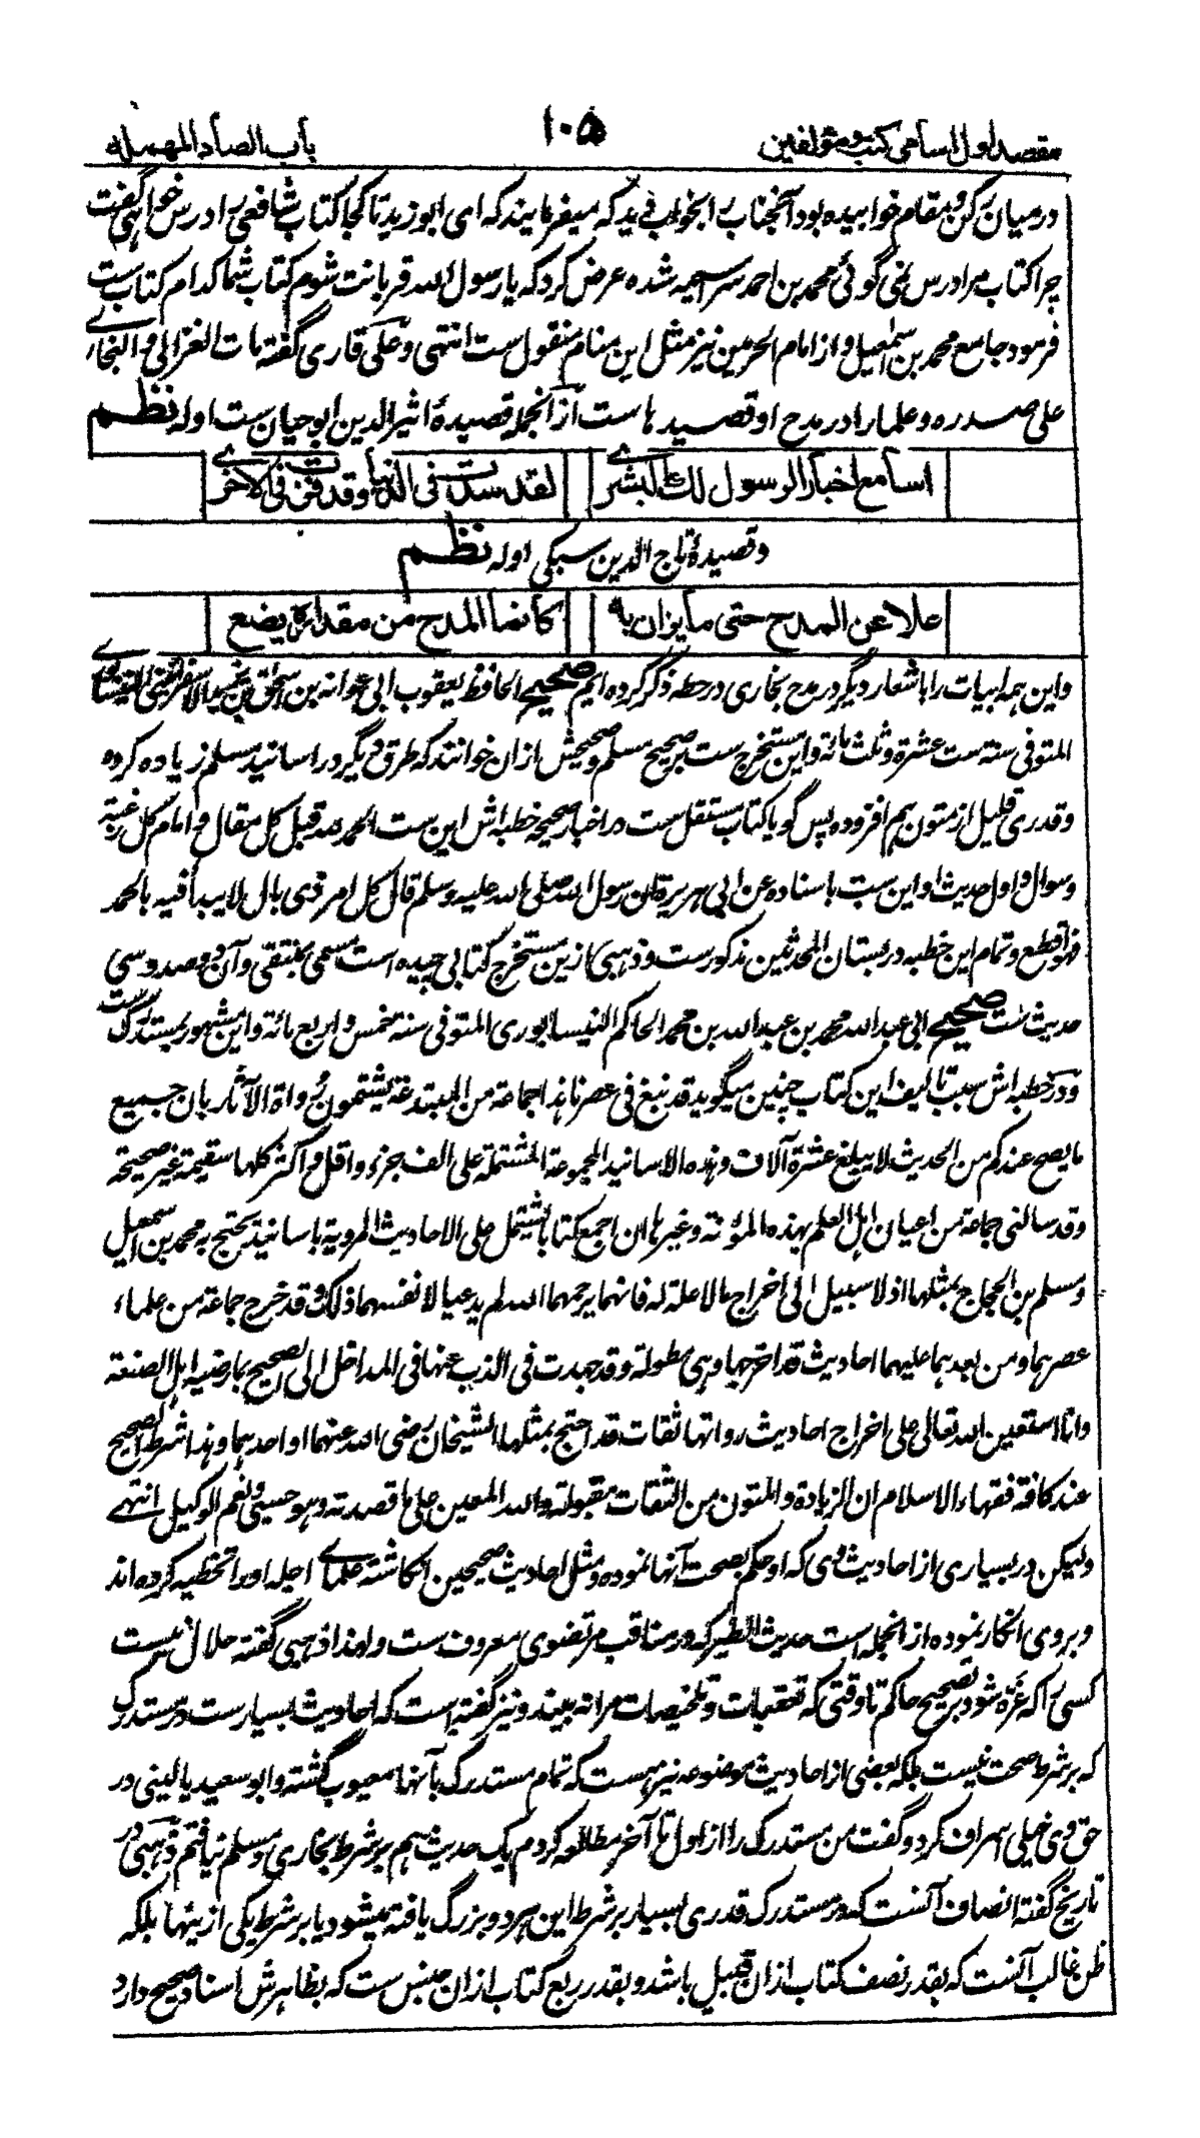 مقصد اول اسامی کتب و مؤلفین
۱۰۵
باب الصاد المهمله
درمیان رکن و مقام خوابیده بود آنجناب را بخواب دید که میفرمایند که ای ابو زید تا کجا کتاب شافعی را درس خواهی گفت
چرا کتاب مرا درس نمی گوئی محمد بن احمد سراسیمه شده عرض کرد که یا رسول الله قربانت شوم کتاب شما کدام کتاب ست
فرمود جامع محمد بن اسمعیل و از امام الحرمین نیز مثل این منام منقول ست انتهی و علی قاری گفته مات الغزالی و البخاری
علی صدره و علما را در مدح او قصیدها ست از آنجمله قصیدهٔ اثیر الدین ابو حیان ست اوله نظم
اسامع اخبار الرسول لك البشری
لقد سدت فی الدنیا وقد فزت فی الاخری
و قصیدهٔ تاج الدین سبکی اوله نظم
علا عن المدح حتی ما یزان به
کانما المدح من مقداره یضع
و این همه ابیات را با شعار دیگر در مدح بخاری در حطه ذکر کرده ایم صحیح الحافظ یعقوب ابی عوانه بن اسحق بن
المتوفی سنة ست عشرة و ثلث مائة و این مستخرج ست بر صحیح مسلم و صحیحش ازان خوانند که طرق دیگر در اسانید مسلم زیاده کرده
و قدری قلیل از متون هم افزوده پس گویا کتاب مستقل ست در اخبار صحیحه خطبه اش این ست الحمد لله قبل کل مقال و امام کل رغبة
و سوال و اول حدیث او این ست باسناده عن ابی هریرة عن رسول الله صلی الله علیه وسلم قال کل امر ذی بال لا یبدأ فیه بالحمد
فهو اقطع و تمام این خطبه در بستان المحدثین مذکور ست و ذهبی کازین مستخرج کتابی چیده است مسمی بمنتقی و آن دو صد و سی
حدیث ست صحیح ابی عبد الله محمد بن عبد الله بن محمد الحاکم النیسابوری المتوفی سنة خمس و اربع مائة و این مشهور بمستدرک ست
و در خطبه اش سبب تالیف این کتاب چنین میگوید قد نبغ فی عصرنا هذا جماعة من المبتدعة یشتمون رواة الآثار بان جمیع
ما یصح عندکم من الحدیث لا یبلغ عشرة آلاف و هذه الاسانید المجموعة المشتملة علی الف جزء و اقل و اکثر کلها سقیمة غیر صحیحة
و قد سالنی جماعة من اعیان اهل العلم بهذه المؤنة و غیرها ان اجمع کتابا یشتمل علی الاحادیث المرویة باسانید یحتج به محمد بن اسمعیل
و مسلم بن الحجاج بمثلها اذ لا سبیل الی اخراج مالا علة له فانهما یرحمهما الله لم یدعیا لانفسهما ذلک و قد خرج جماعة من علماء
عصرهما و من بعدهما علیهما احادیث قد اخرجها وهی مطولة و قد جهدت فی الذب عنها فی المدخل الی الصحیح بما رضیه اهل الصنعة
و انا استعین الله تعالی علی اخراج احادیث رواتها ثقات قد احتج بمثلها الشیخان رضی الله عنهما او احدهما و هذا شرط الصحیح
عند کافة فقهاء الاسلام ان الزیادة و المتون من الثقات مقبولة و الله المعین علی ما قصدته و هو حسبی و نعم الوکیل انتهی
ولیکن در بسیاری از احادیث وی که او حکم بصحت آنها نموده و مثل احادیث صحیحین انگاشته علمای اجله او را تخطیه کرده اند
و بروی انکار نموده از انجمله است حدیث الطیر که در مناقب مرتضوی معروف ست و لهذا ذهبی گفته حلال نیست
کسی را که غره شود بر تصحیح حاکم تا وقتی که تعقبات و تلخیصات مرا نه بیند و نیز گفته است که احادیث بسیار ست در مستدرک
که بر شرط صحت نیست بلکه بعضی از احادیث موضوعه نیز هست که تمام مستدرک بآنها معیوب گشته و ابو سعید مالینی در
حق وی خیلی اسراف کرد و گفت من مستدرک را از اول تا آخر مطالعه کردم یک حدیث هم بر شرط بخاری و مسلم نیافتم ذهبی در
تاریخ گفته انصاف آنست که در مستدرک قدری بسیار بر شرط این هر دو بزرگ یافته میشود یا بر شرط یکی ازینها بلکه
ظن غالب آنست که بقدر نصف کتاب ازان قبیل باشد و بقدر ربع کتاب ازان جنس ست که بظاهرش اسناد صحیح دارد